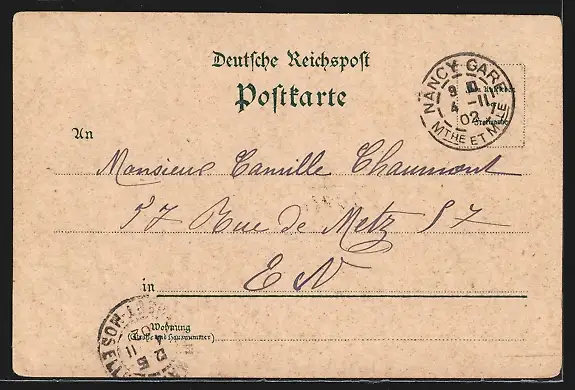 Deutsche Reichspost
Postkarte
NANCY GARE
4 -11
02
MTHE ET MLLE
An
Monsieur Camille Chaumont
57 Rue de Metz 57
E V
in
Wohnung
(Straße und Hausnummer)